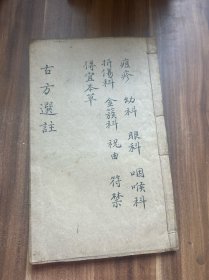 痘疹 幼科 眼科 咽喉科
折傷科 金簇科 祝由 符禁
得宜本草
古方選註